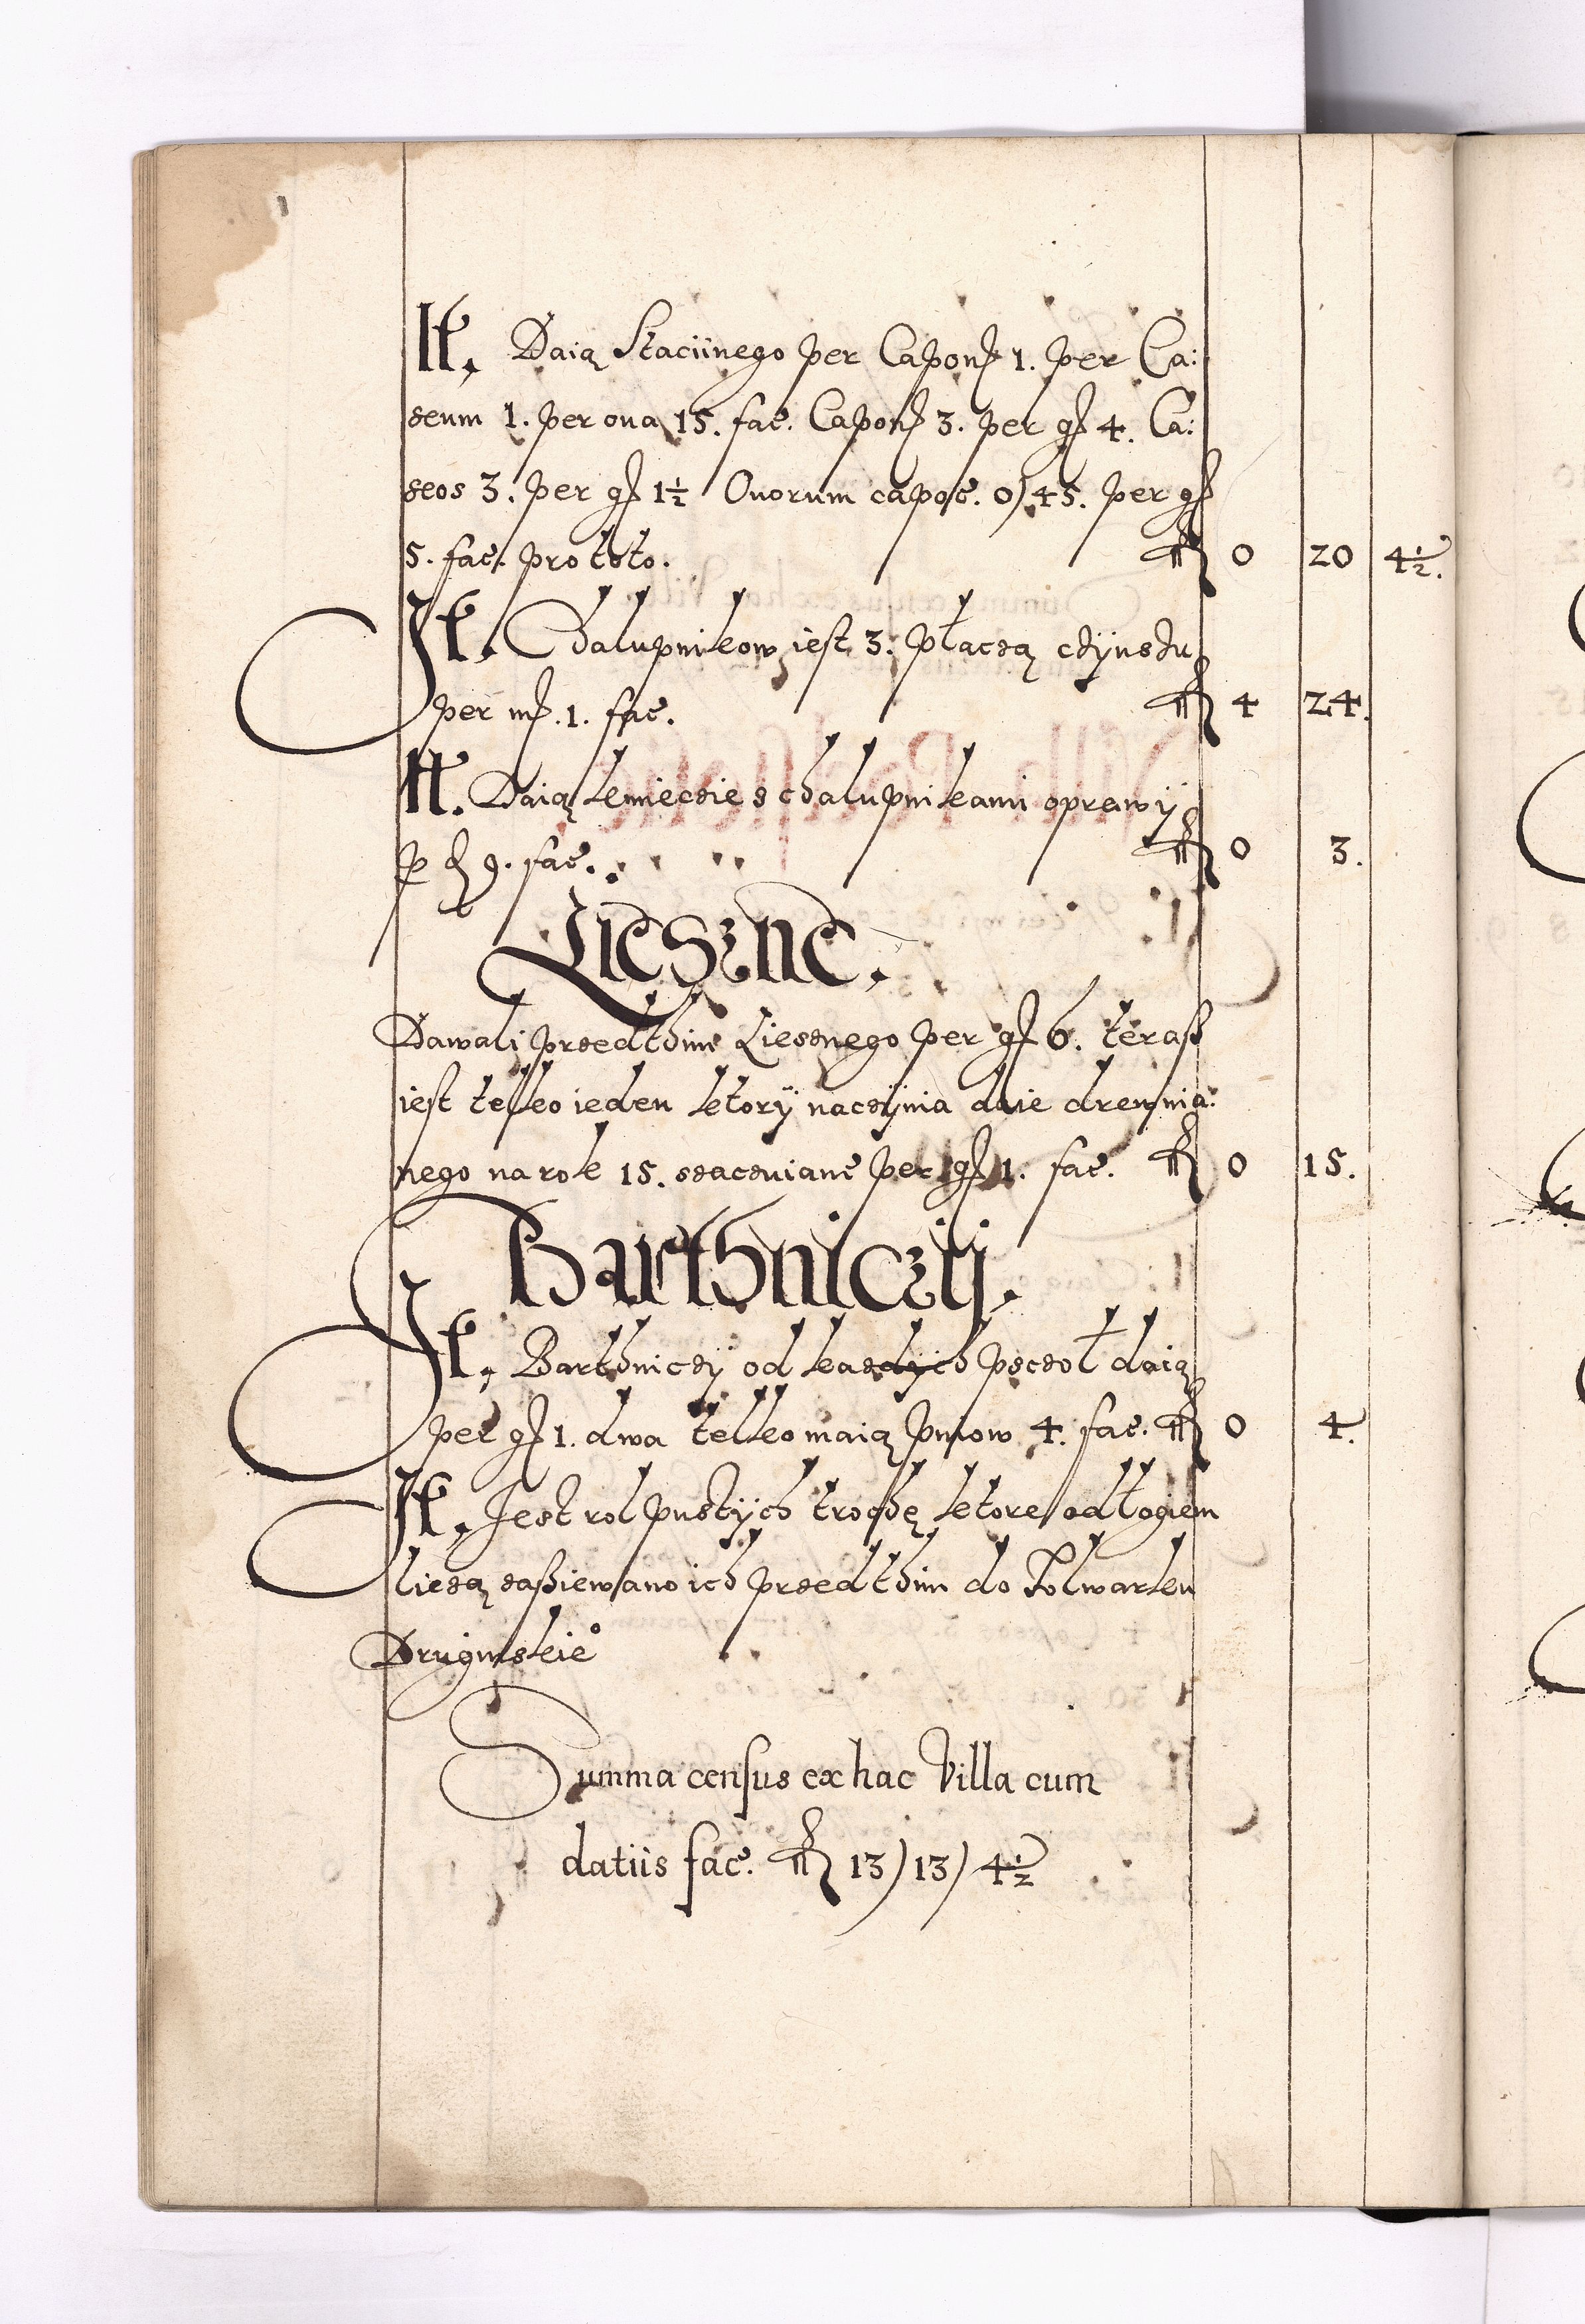 It. Daią Staciinego per Capon 1. per Ca:
seum 1. per oua 15. fac. Capon 3. per gr 4. Ca:
seos 3. per gr 1½ Ouorum capoc. 0) 45. per gr
5. fac. pro toto. fl 0 20 4½.
It. Chalupnikow iest 3. płaczą czÿnszu
per mr. 1. fac. fl 4 24.
It. Daią kmieczie s chalupnikami oprawÿ
p d 9. fac. fl 0 3.
Lieszne.
Dawali przedthim Liesznego per gr 6. teras
iest telko ieden ktorÿ naczÿnia daie drewnia:
nego na rok 15. szaczuiane per gr 1. fac. fl 0 15.
Barthniczÿ.
It. Barthniczÿ od każdÿch pszczoł daią
per gr 1. dwa telko maią pniow 4. fac. fl 0 4.
It. Jest rol pustÿch trochę ktore odłogiem
lieżą zaßiewano ich przedthim do Folwarku
Drugniskie°
Summa census ex hac Villa cum
datiis fac. fl 13) 13) 4½